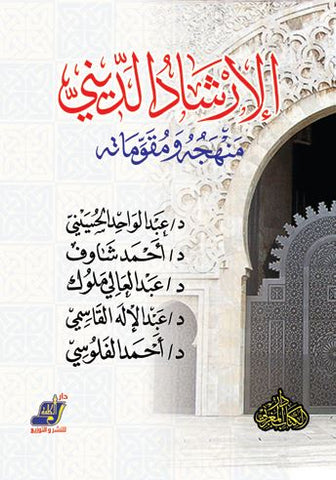 الإرشاد الديني
منهجه ومقوماته
د/ عبد الواحد الحسيني
د/ أحمد شاوف
د/ عبد العالي ملوك
د/ عبد الإله القاسمي
د/ أحمد الفلوسي
دار
الكلمة
للنشر والتوزيع
دار
الكتاب المغربي